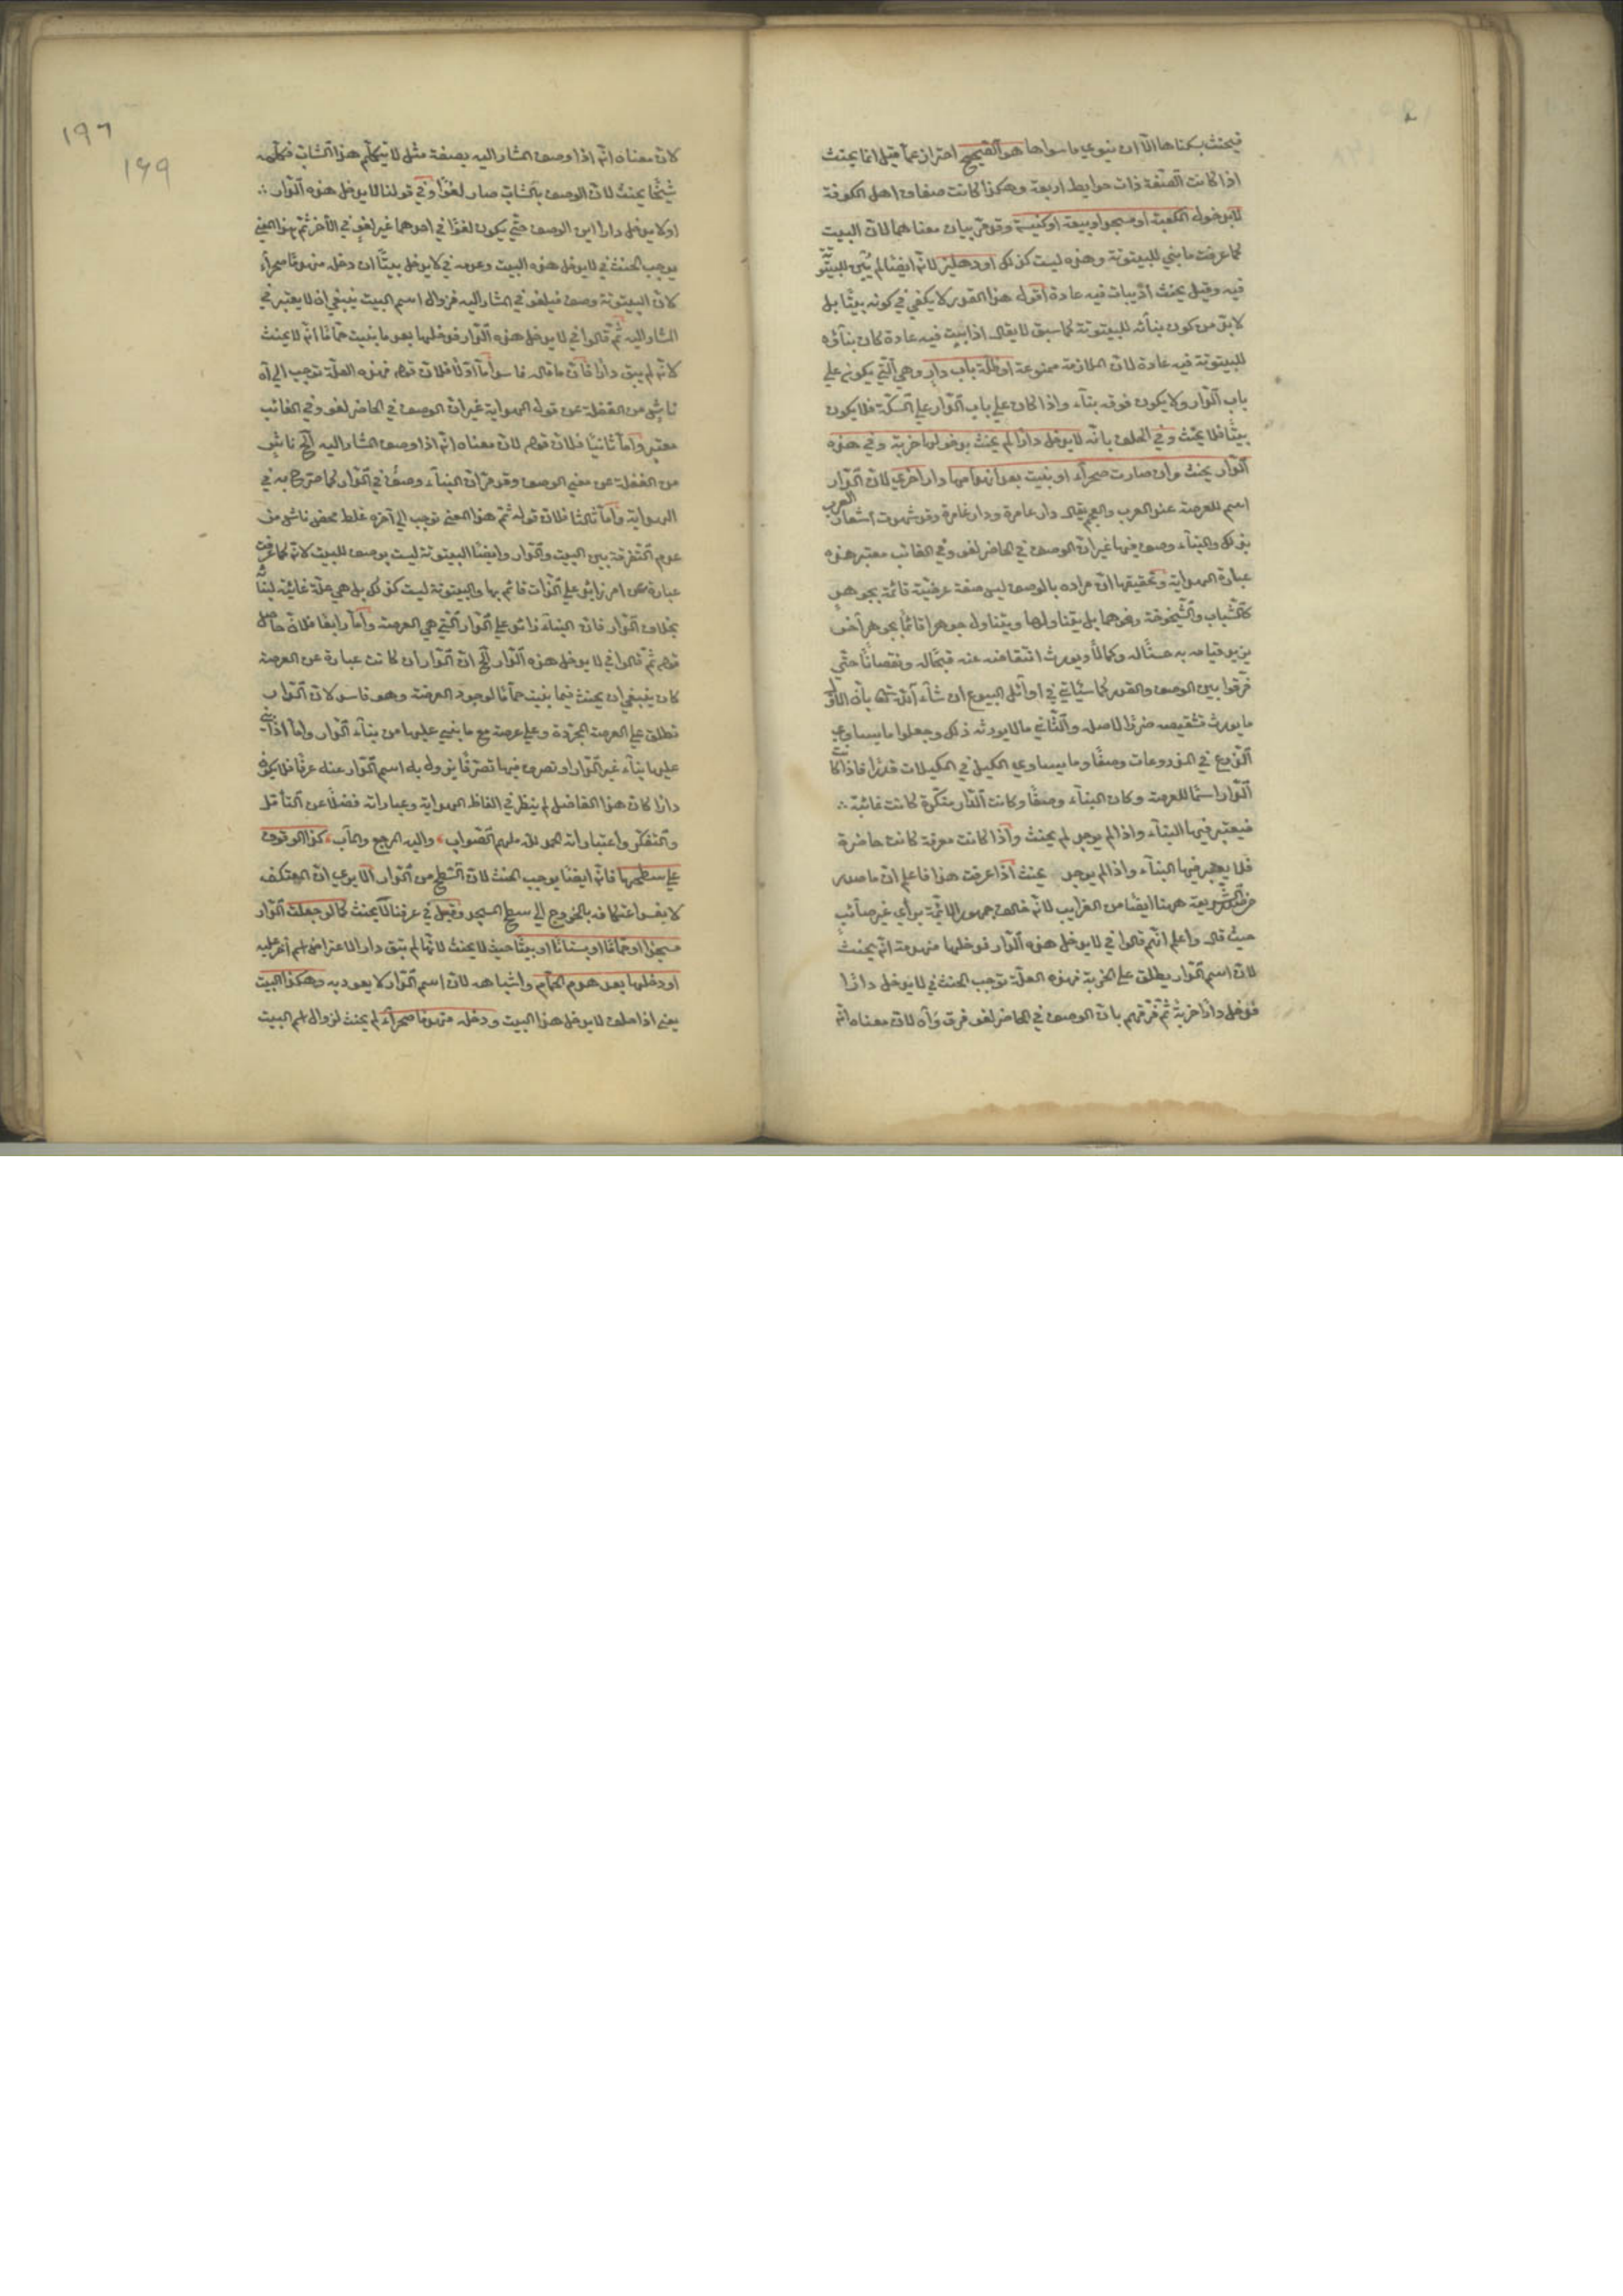 فيحنث بسكناها الا ان ينوي ما سواها هو الصحيح احتراز عما قيل انما يحنث
اذا كانت الصفة ذات حوايط اربعة وهكذا كانت صفاف اهل الكوفة
لا بدخوله الكعبة او مسجدا او بيعة او كنيسة وقد مر بيان معناهما لان البيت
كما عرفت ما بني للبيتوتة وهذه ليست كذلك او دهليز لانه ايضا لم يبن للبيتوتة
فيه وقيل يحنث اذ يبات فيه عادة اقول هذا القدر لا يكفي في كونه بيتا بل
لا بد من كون بنائه للبيتوتة كما سبق لا يقال اذا بيت فيه عادة كان بناؤه
للبيتوتة فيه عادة لان الملازمة ممنوعة او ظلة باب دار وهي التي يكون على
باب الدار ولا يكون فوقه بناء واذا كان على باب الدار على السكة فلا يكون
بيتا فلا يحنث وفي الحلف بانه لا يدخل دارا لم يحنث بدخولها خربة وفي هذه
الدار يحنث وان صارت صحراء او بنيت بعد انهدامها دار اخرى لان الدار
اسم للعرصة عند العرب والعجم يقال دار عامرة ودار غامرة وقد شهدت اشعار العرب
بذلك والبناء وصف فيها غير ان الوصف في الحاضر لغو وفي الغائب معتبر هذه
عبارة الهداية وتحقيقها ان مراده بالوصف ليس صفة عرضية قائمة بجوهر
كالشباب والشيخوخة ونحوهما بل يتناولها ويتناول جوهرا قائما بجوهر آخر
يزيد قيامه به حسنا له وكمالا ويورث انتقاضه عنه قبحا له ونقصانا حتى
فرقوا بين الوصف والقدر كما سيأتي في اوائل البيوع ان شاء الله تعالى بان الاول
ما يورث تنقيصه ضررا للاصل والثاني ما لا يورث ذلك وجعلوا ما يساوي
الذرع في المذروعات وصفا وما يساوي الكيل في المكيلات قدرا فاذا كانت
الدار اسما للعرصة وكان البناء وصفا وكانت الدار منكرة كانت غائبة
فيعتبر فيها البناء واذا لم يوجد لم يحنث واذا كانت معرفة كانت حاضرة
فلا يعتبر فيها البناء واذا لم يوجد يحنث اذا عرفت هذا فاعلم ان ما صدر
من صدر الشريعة ههنا ايضا من الغرايب لانه خالف جمهور الائمة براي غير صائب
حيث قال واعلم انهم قالوا في لا يدخل هذه الدار فدخلها منهدمة انه يحنث
لان اسم الدار يطلق على الخربة فهذه العلة توجب الحنث في لا يدخل دارا
فدخل دارا خربة ثم فرقهم بان الوصف في الحاضر لغو فرق واه لان معناه انه
١٩٦
١٤٩
لان معناه انه اذا وصف المشار اليه بصفة مثل لا يكلم هذا الشاب فكلمه
شيخا يحنث لان الوصف بالشاب صار لغوا وفي قولنا لا يدخل هذه الدار
او لا يدخل دارا اين الوصف حتى يكون لغوا في احدهما غير لغو في الآخر ثم هذا المعنى
يوجب الحنث في لا يدخل هذه البيت وعدمه في لا يدخل بيتا ان دخل منهدما صحراء
لان البيتوتة وصف فيلغو في المشار اليه فزوال اسم البيت ينبغي ان لا يعتبر في
المشار اليه ثم قالوا في لا يدخل هذه الدار فدخلها بعد ما بنيت حماما انه لا يحنث
لانه لم يبق دارا فان ما قاله فاسد اما اولا فلان قوله فهذه العلة توجب الى آخره
ناش من الغفلة عن قوله الهداية غير ان الوصف في الحاضر لغو وفي الغائب
معتبر واما ثانيا فلان قوله لان معناه انه اذا وصف المشار اليه الخ ناش
من الغفلة عن معنى الوصف وقد مر ان البناء وصف في الدار كما صرح به في
الهداية واما ثالثا فلان قوله ثم هذا المعنى توجب الى آخره غلط محض ناش من
عدم التفرقة بين البيت والدار وايضا البيتوتة ليست بوصف للبيت لانه كما عرفت
عبارة عن امر زائد على الذات قائم بها والبيتوتة ليست كذلك بل هي علة غائية لبنائه
بخلاف الدار فان البناء زائد على الدار التي هي العرصة واما رابعا فلان حاصل
قوله ثم قالوا في لا يدخل هذه الدار الخ ان الدار ان كانت عبارة عن العرصة
كان ينبغي ان يحنث فيما بنيت حماما لوجود العرصة وهو فاسد لان الدار
تطلق على العرصة المجردة وعلى عرصة مع ما بني عليها من بناء الدار واما اذا بني
عليها بناء غير الدار او تصرف فيها تصرفا يزول به اسم الدار عنه عرفا فلا يكون
دارا كان هذا الفاضل لم ينظر في الفاظ الهداية وعباراته فضلا عن التأمل
والتفكر واعتباراته الحمد لله ملهم الصواب واليه المرجع والمآب كذا الوقوف
على سطحها فانه ايضا يوجب الحنث لان السطح من الدار الا يرى ان المعتكف
لا يفسد اعتكافه بالخروج الى سطح المسجد وقيل في عرفنا لا يحنث كما لو جعلت الدار
مسجدا او حماما او بستانا او بيتا حيث لا يحنث لانها لم تبق دارا لاعتراض اسم آخر عليه
او دخلها بعد هدم الحمام واشباهه لان اسم الدار لا يعود به وهكذا البيت
يعني اذا حلف لا يدخل هذا البيت ودخله منهدما صحراء لم يحنث لزوال اسم البيت